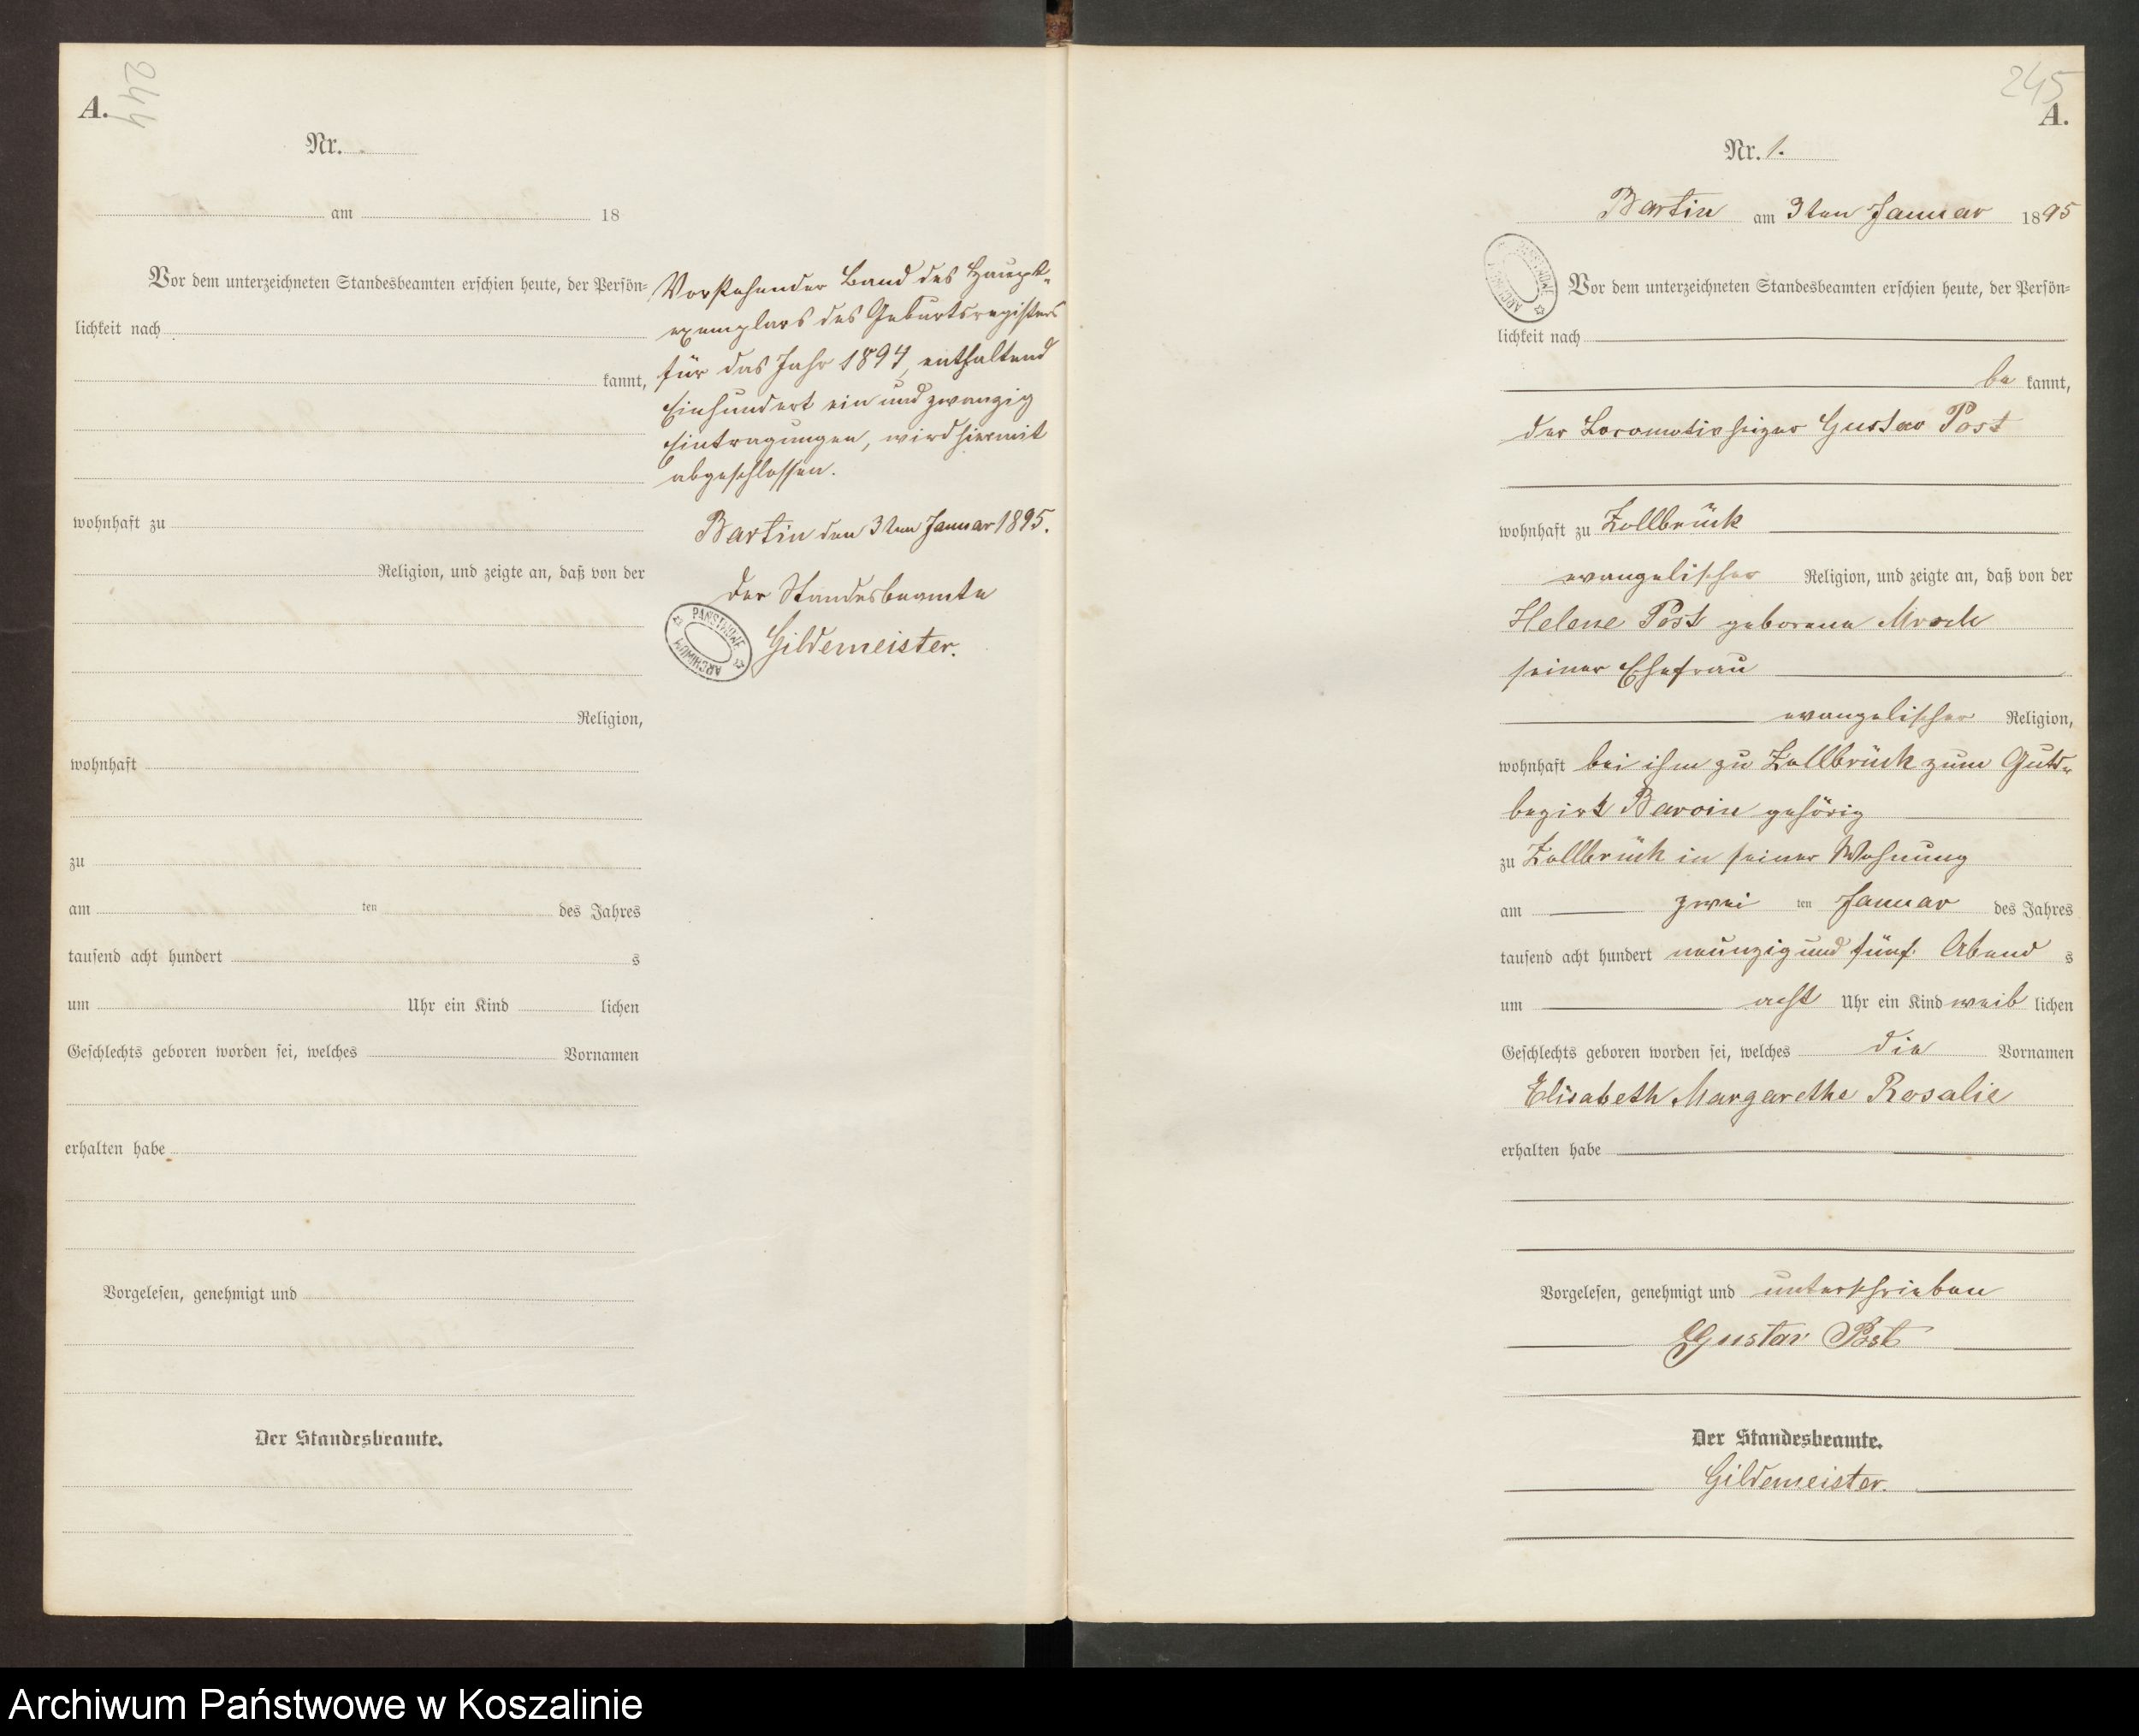 244
A.
Nr.
am 18
Vor dem unterzeichneten Standesbeamten erschien heute, der Persön-
lichkeit nach
kannt,
wohnhaft zu
Religion, und zeigte an, daß von der
Religion,
wohnhaft
zu
am ten des Jahres
tausend acht hundert s
um Uhr ein Kind lichen
Geschlechts geboren worden sei, welches Vornamen
erhalten habe
Vorgelesen, genehmigt und
Der Standesbeamte.
Vorstehender Band des Haupt-
exemplars des Geburtsregisters
für das Jahr 1894, enthaltend
Einhundert ein und zwanzig
Eintragungen, wird hiermit
abgeschlossen.
Bartin den 3ten Januar 1895.
Der Standesbeamte
Gildemeister.
ARCHIWUM PAŃSTWOWE
245
A.
Nr. 1.
Bartin am 3ten Januar 1895
Vor dem unterzeichneten Standesbeamten erschien heute, der Persön-
lichkeit nach
be kannt,
der Locomotivheizer Gustav Post
wohnhaft zu Zollbrück
evangelischer Religion, und zeigte an, daß von der
Helene Post geborene
seiner Ehefrau
evangelischer Religion,
wohnhaft bei ihm zu Zollbrück zum Guts-
bezirk Barvin gehörig
zu Zollbrück in seiner Wohnung
am zwei ten Januar des Jahres
tausend acht hundert neunzig und fünf Abend s
um acht Uhr ein Kind weib lichen
Geschlechts geboren worden sei, welches die Vornamen
Elisabeth Margarethe Rosalie
erhalten habe
Vorgelesen, genehmigt und unterschrieben
Gustav Post
Der Standesbeamte.
Gildemeister.
Archiwum Państwowe w Koszalinie